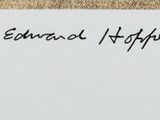 Edward Hopp